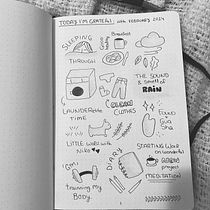 TODAY I'M GRATEFUL with FEBRUARY 2024
SLEEPING
Breakfast
THROUGH
THE SOUND
& smell of
RAIN
LAUNDERette
TIME
CLEAN
CLOTHES
FOUND
Gua
Sha
Little WALK with
Niko
STARTING WORK
on wonderful
project
DIARY
Gym:
training My
Body.
MEDITATION